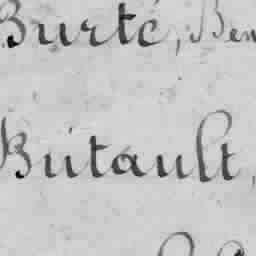 Burté, Ben
Butault,